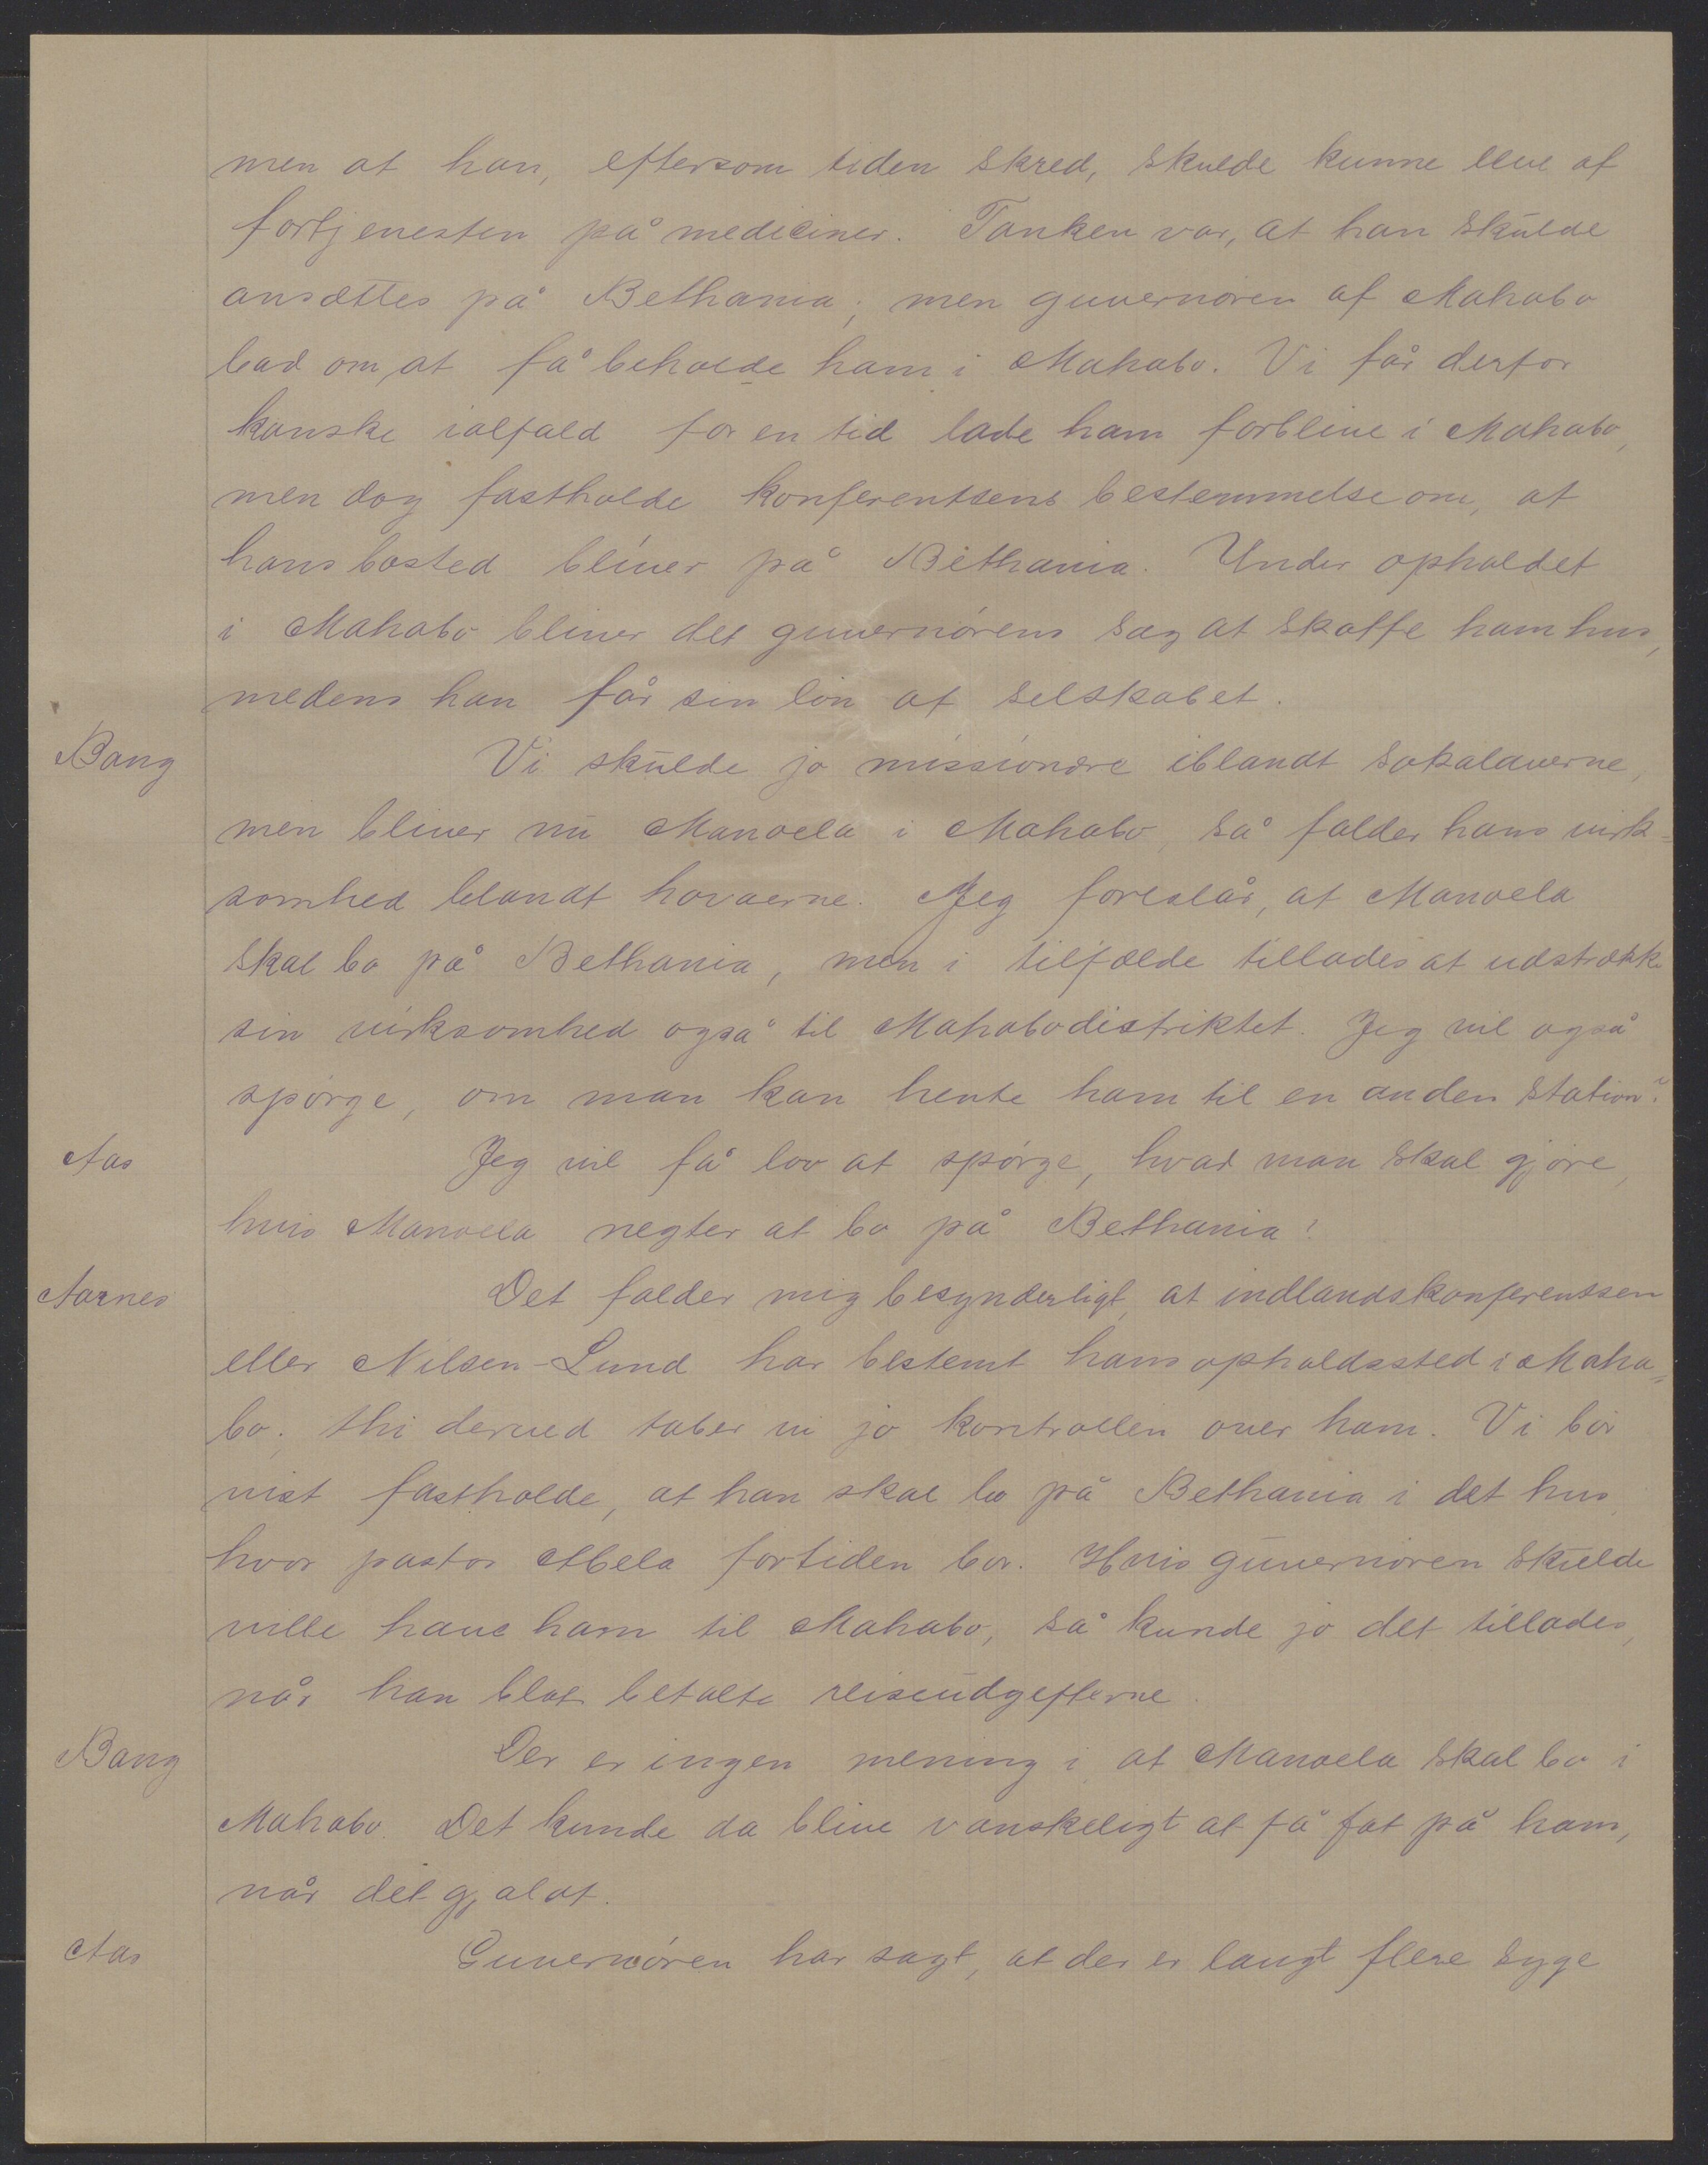 men at han, eftersom tiden skred, skulde kunne leve af
fortjenesten på mediciner. Tanken var, at han skulde
ansættes på Bethania; men guvernøren af Mahabo
bad om, at få beholde ham i Mahabo. Vi får derfor
kanske ialfald for en tid lade ham forblive i Mahabo,
men dog fastholde konferentsens bestemmelse om, at
hans bosted bliver på Bethania. Under opholdet
i Mahabo bliver det guvernørens sag at skaffe ham hus,
medens han får sin løn af selskabet.
Bang Vi skulde jo missionere iblandt sakalaverne,
men bliver nu Manoela i Mahabo, så falder hans virk-
somhed blandt hovaerne. Jeg foreslår, at Manoela
skal bo på Bethania, men i tilfælde tillades at udstrække
sin virksomhed også til Mahabodistriktet. Jeg vil også
spørge, om man kan hente ham til en anden station?
Aas Jeg vil få lov at spørge, hvad man skal gjøre,
hvis Manoela negter at bo på Bethania?
Aarnes Det falder mig besynderligt, at indlandskonferentsen
eller Nilsen-Lund har bestemt hans opholdssted i Maha=
bo; thi derved taber vi jo kontrollen over ham. Vi bør
vist fastholde, at han skal bo på Bethania i det hus,
hvor pastor Abela fortiden bor. Hvis guvernøren skulde
ville have ham til Mahabo, så kunde jo det tillades,
når han blot betalte reiseudgifterne.
Bang Der er ingen mening i, at Manoela skal bo i
Mahabo. Det kunde da blive vanskeligt at få fat på ham,
når det gjaldt.
Aas Guvernøren har sagt, at der er langt flere syge